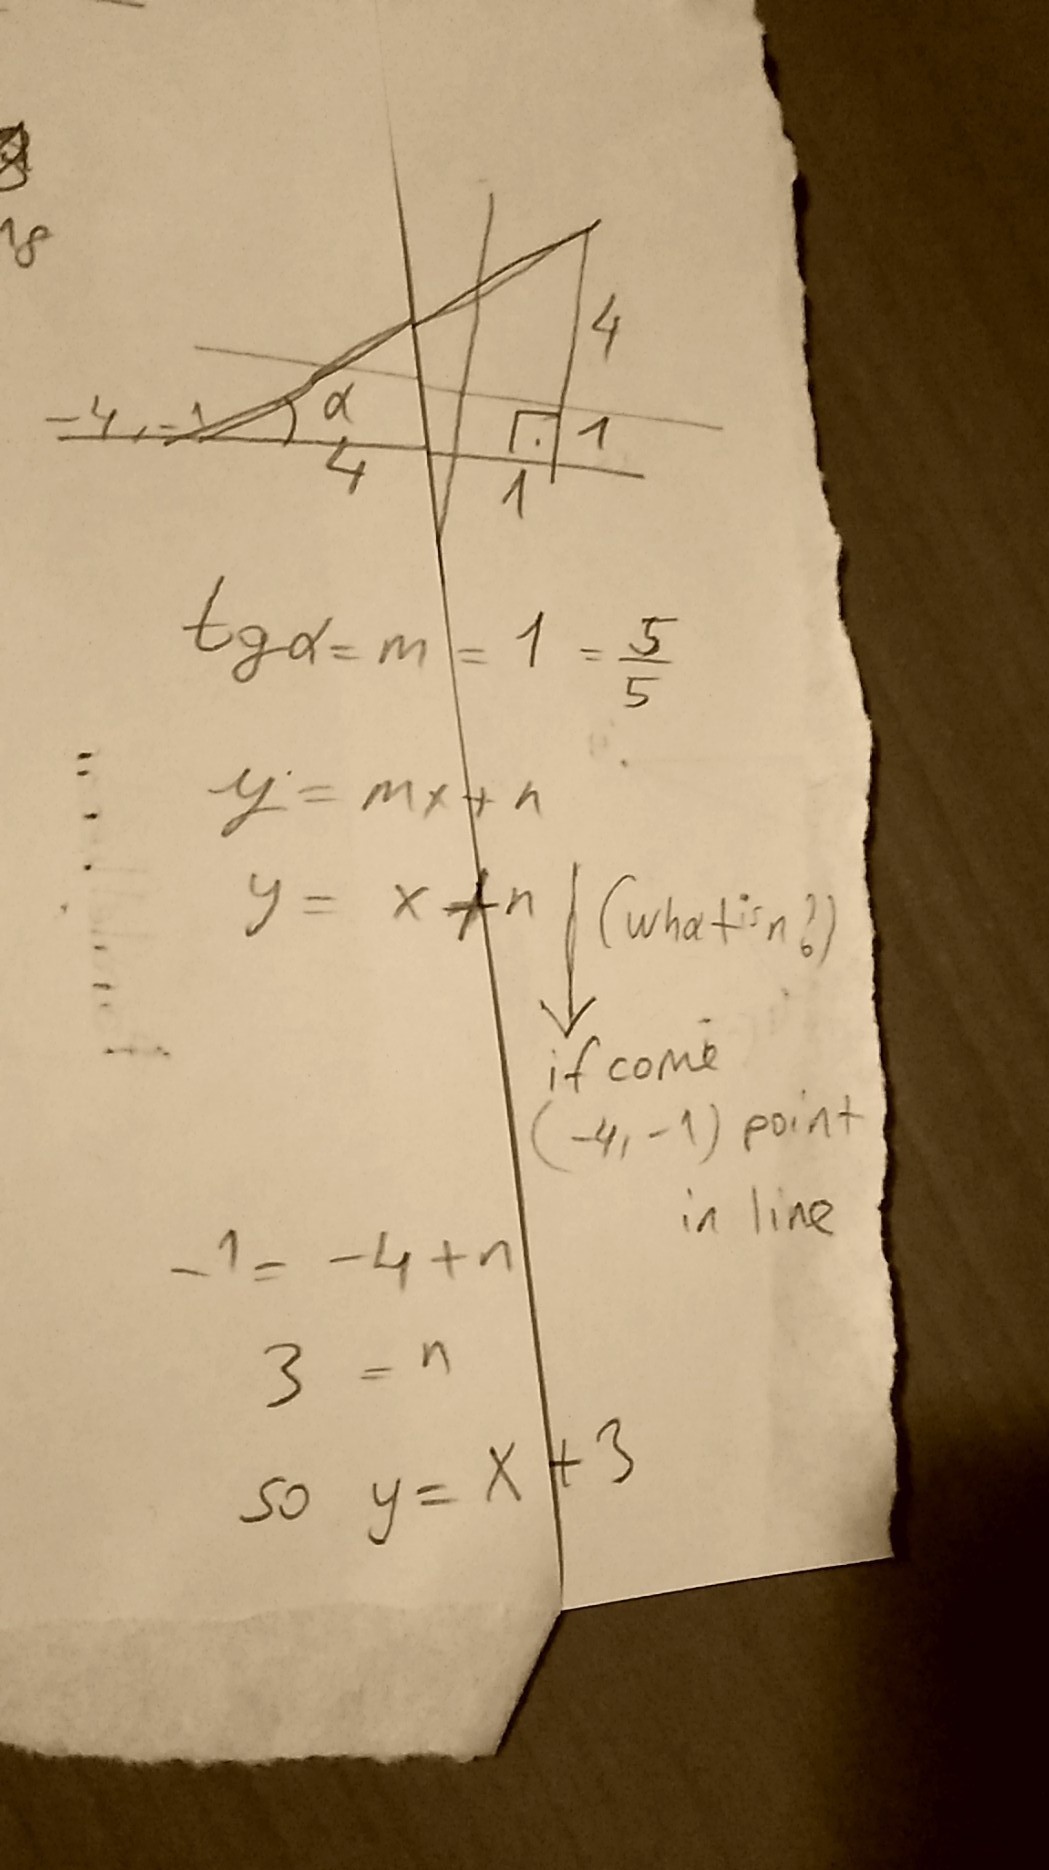 4
-4, -1
α
1
4
1
tgα = m = 1 = 5/5
y = mx + n
y = x + n (what is n?)
if come
(-4, -1) point
in line
-1 = -4 + n
3 = n
so y = x + 3